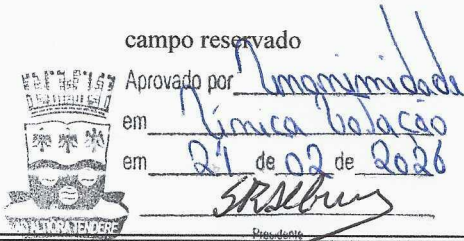 campo reservado
Aprovado por Unanimidade
em Única Votação
em 21 de 02 de 2026
Presidente